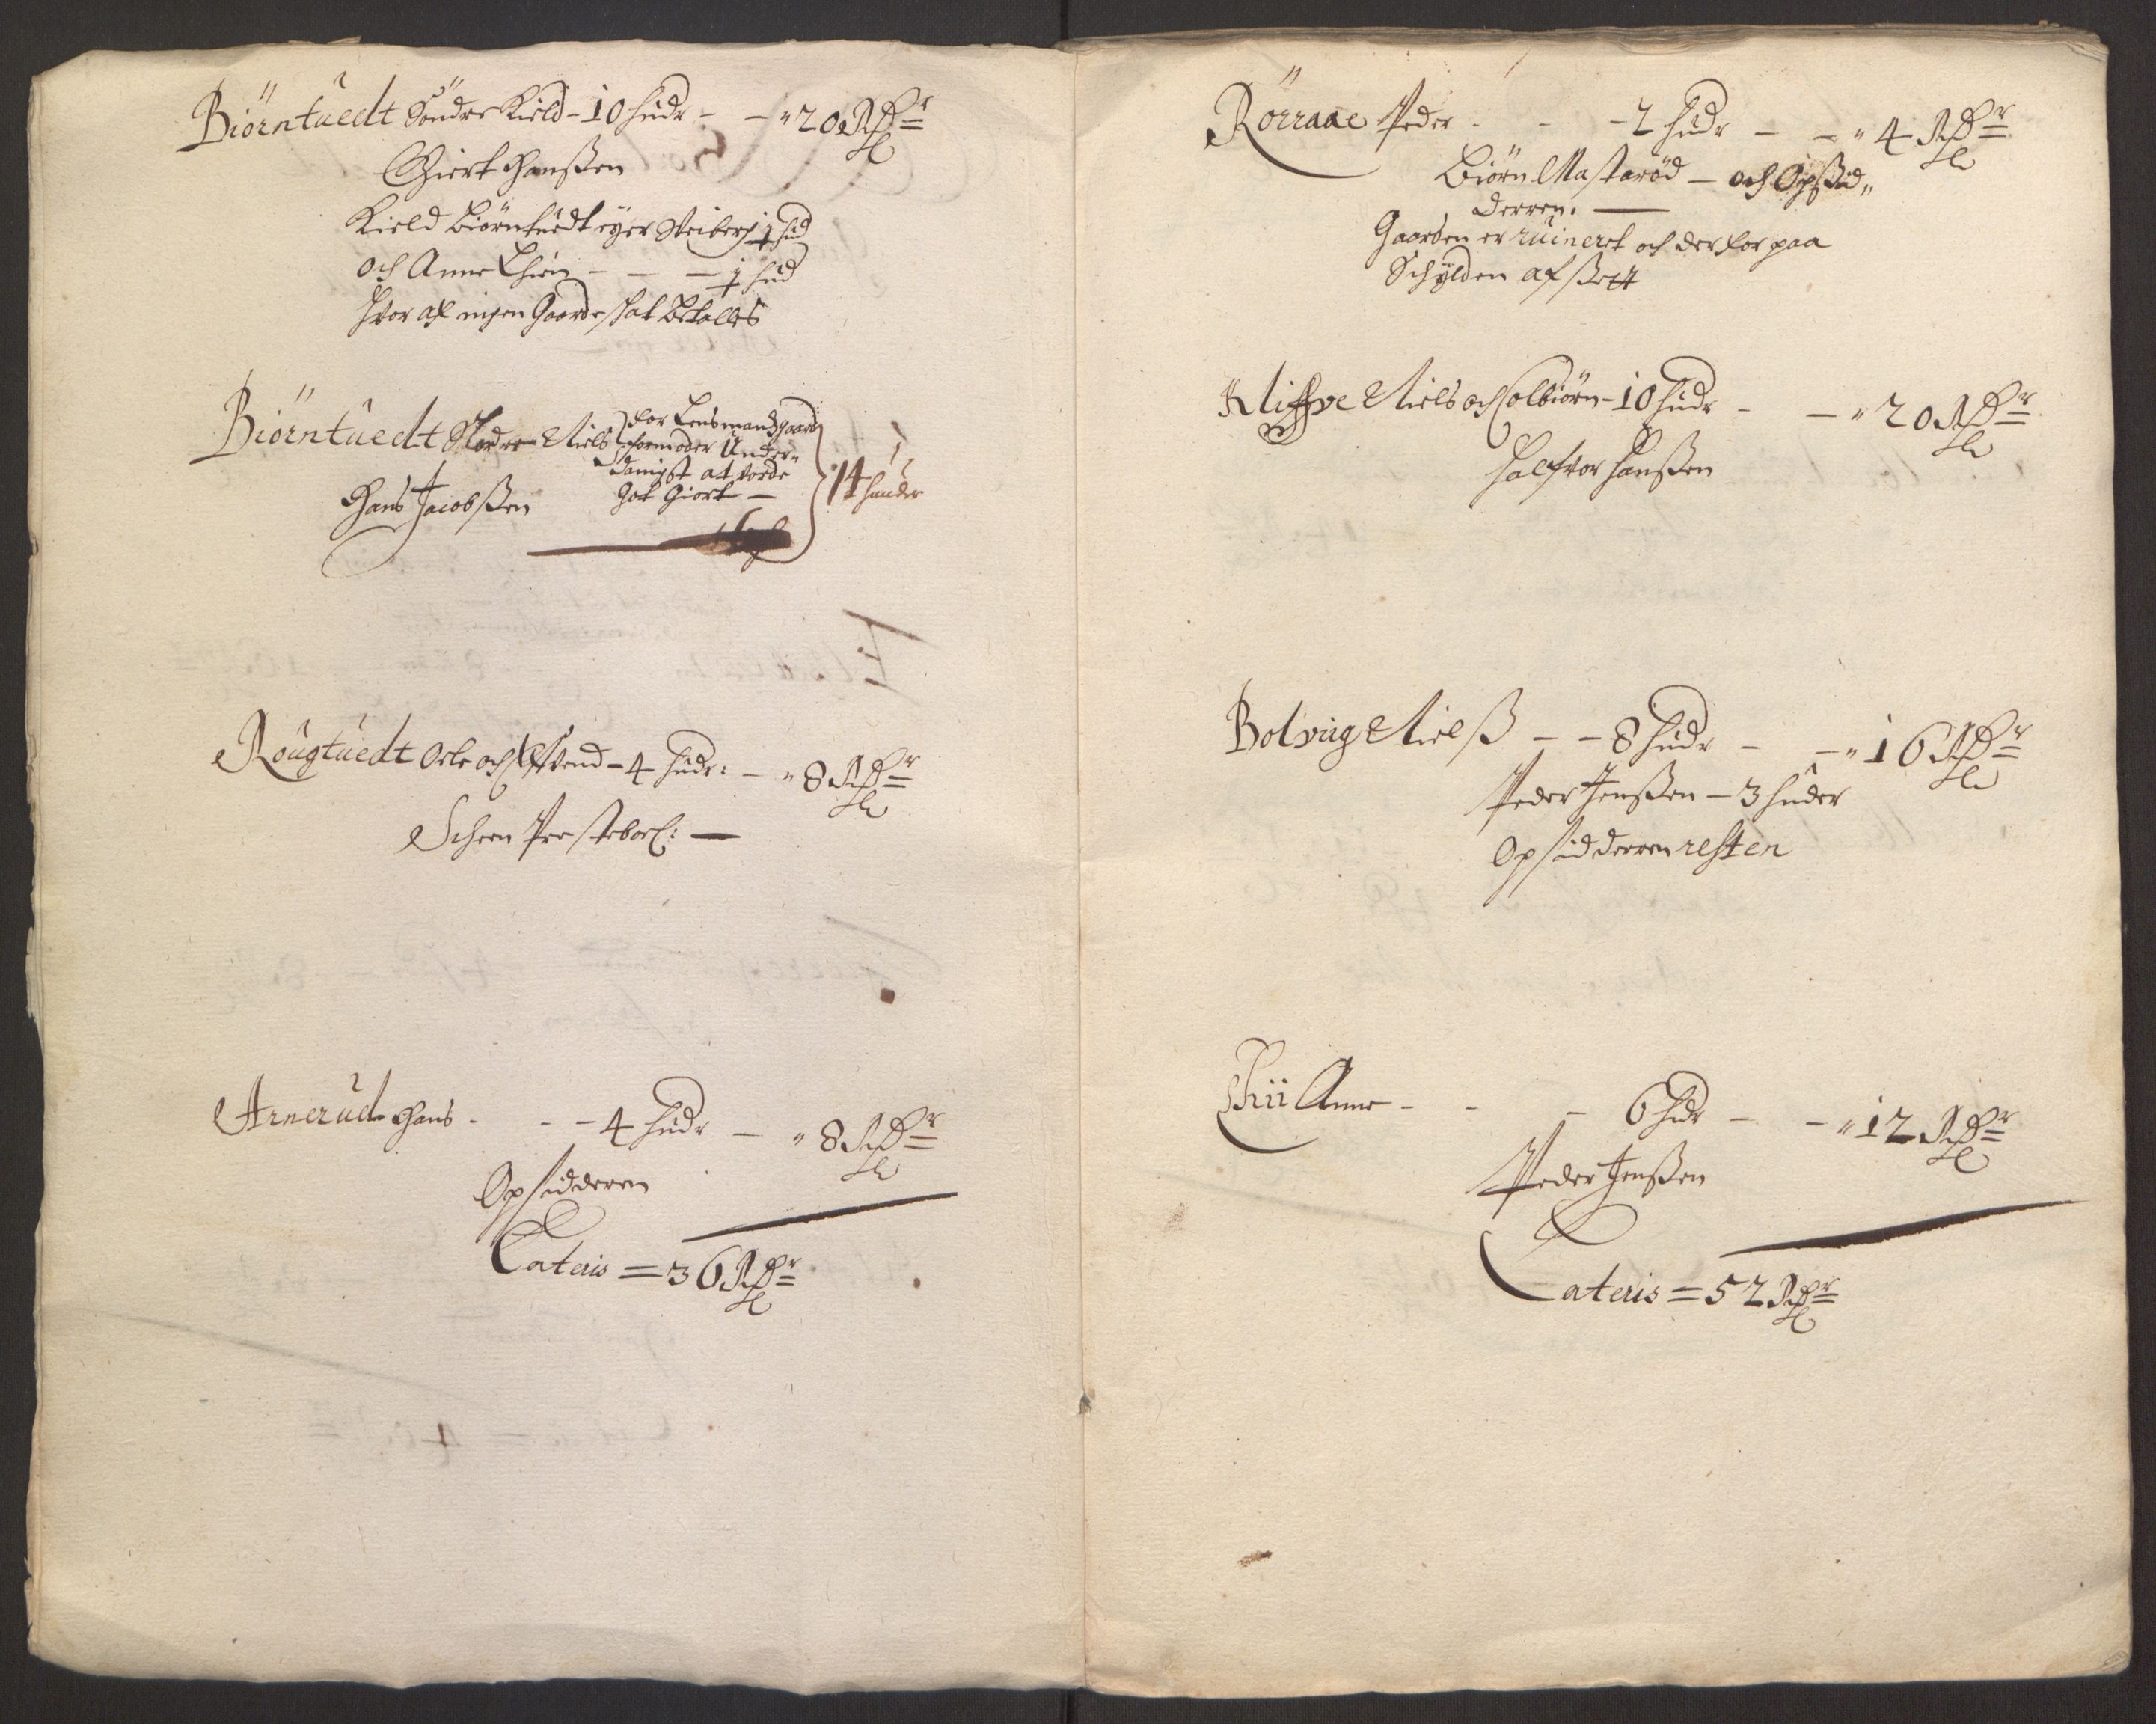 Biörntuedt Söndre Kield - 10 hudr - - " 20 Rdr
Giert Hanßen
Kield Biörntuedt eyer Kiberg 1 hud
och Anne Lhien - - - 1 hud
hvor af ingen Gaarde skat Betalles
Biörntuedt Nordre Niels
for Lensmandsgaard
formoder Under-
danigst at vorde
Got Giort -
14 huder
Hans Jacobßen
Rougtuedt Ole och Effvend - 4 hudr: - " 8 Rdr
Scheen Prestebol: -
Arnerud Hans - - - 4 hudr - " 8 Rdr
Opsidderen
Lateris = 36 Rdr
Rörraae Peder - - - 2 hudr - - " 4 Rdr
Biörn Mastaröd - och Opsid„
derren. -
Gaarden er ruineret och der for paa
Schylden afsett
Kliffve Niels och Colbiörn - 10 hudr - - " 20 Rdr
Halfvor Hanßen
Bolvig Nielß - - 8 hudr - - " 16 Rdr
Peder Jenßen - 3 huder
Opsidderren resten
Thii Anne - - - 6 hdr - - " 12 Rdr
Peder Jenßen
Lateris = 52 Rdr